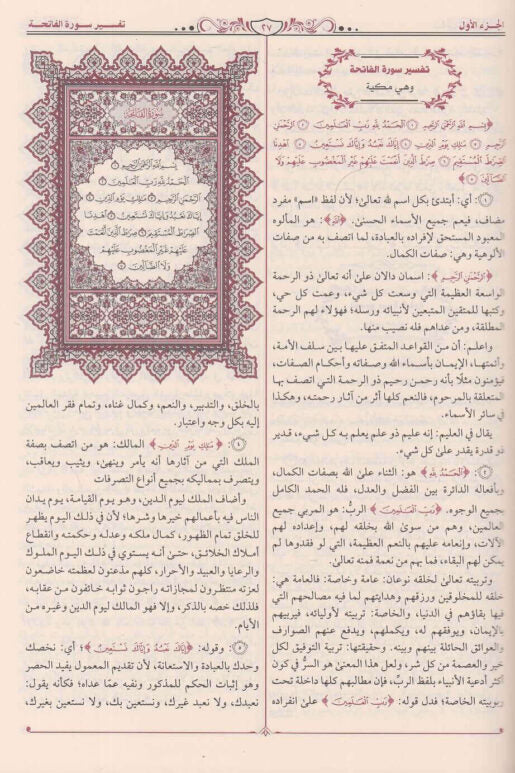 الجزء الأول
٢٧
تفسير سورة الفاتحة
تفسير سورة الفاتحة
وهي مكية
﴿بِسْمِ اللَّهِ الرَّحْمَٰنِ الرَّحِيمِ ۝١ الْحَمْدُ لِلَّهِ رَبِّ الْعَالَمِينَ ۝٢ الرَّحْمَٰنِ
الرَّحِيمِ ۝٣ مَالِكِ يَوْمِ الدِّينِ ۝٤ إِيَّاكَ نَعْبُدُ وَإِيَّاكَ نَسْتَعِينُ ۝٥ اهْدِنَا
الصِّرَاطَ الْمُسْتَقِيمَ ۝٦ صِرَاطَ الَّذِينَ أَنْعَمْتَ عَلَيْهِمْ غَيْرِ الْمَغْضُوبِ عَلَيْهِمْ وَلَا
الضَّالِّينَ ۝٧﴾
﴿١﴾ أي: أبتدئ بكل اسم لله تعالى؛ لأن لفظ «اسم» مفرد
مضاف، فيعم جميع الأسماء الحسنى. ﴿اللَّهِ﴾: هو المألوه
المعبود المستحق لإفراده بالعبادة، لما اتصف به من صفات
الألوهية وهي: صفات الكمال.
﴿الرَّحْمَٰنِ الرَّحِيمِ﴾: اسمان دالان على أنه تعالى ذو الرحمة
الواسعة العظيمة التي وسعت كل شيء، وعمت كل حي،
وكتبها للمتقين المتبعين لأنبيائه ورسله؛ فهؤلاء لهم الرحمة
المطلقة، ومن عداهم فله نصيب منها.
واعلم: أن من القواعد المتفق عليها بين سلف الأمة،
وأئمتها، الإيمان بأسماء الله وصفاته وأحكام الصفات،
فيؤمنون مثلًا بأنه رحمن رحيم ذو الرحمة التي اتصف بها
المتعلقة بالمرحوم، فالنعم كلها أثر من آثار رحمته، وهكذا
في سائر الأسماء.
يقال في العليم: إنه عليم ذو علم يعلم به كل شيء، قدير
ذو قدرة يقدر على كل شيء.
﴿٢﴾ ﴿الْحَمْدُ لِلَّهِ﴾ هو: الثناء على الله بصفات الكمال،
وبأفعاله الدائرة بين الفضل والعدل، فله الحمد الكامل
بجميع الوجوه. ﴿رَبِّ الْعَالَمِينَ﴾ الربّ: هو المربي جميع
العالمين، وهم من سوى الله بخلقه لهم، وإعداده لهم
الآلات، وإنعامه عليهم بالنعم العظيمة، التي لو فقدوها لم
يمكن لهم البقاء، فما بهم من نعمة فمنه تعالى.
وتربيته تعالى لخلقه نوعان: عامة وخاصة: فالعامة هي:
خلقه للمخلوقين ورزقهم وهدايتهم لما فيه مصالحهم التي
فيها بقاؤهم في الدنيا، والخاصة: تربيته لأوليائه، فيربيهم
بالإيمان، ويوفقهم له، ويكملهم، ويدفع عنهم الصوارف
والعوائق الحائلة بينهم وبينه. وحقيقتها: تربية التوفيق لكل
خير والعصمة من كل شر، ولعل هذا المعنى هو السرُّ في كون
أكثر أدعية الأنبياء بلفظ الربّ، فإن مطالبهم كلها داخلة تحت
ربوبيته الخاصة؛ فدل قوله: ﴿رَبِّ الْعَالَمِينَ﴾ على انفراده
سورة الفاتحة
بِسْمِ اللَّهِ الرَّحْمَٰنِ الرَّحِيمِ ۝١
الْحَمْدُ لِلَّهِ رَبِّ الْعَالَمِينَ ۝٢
الرَّحْمَٰنِ الرَّحِيمِ ۝٣ مَالِكِ يَوْمِ الدِّينِ ۝٤
إِيَّاكَ نَعْبُدُ وَإِيَّاكَ نَسْتَعِينُ ۝٥ اهْدِنَا
الصِّرَاطَ الْمُسْتَقِيمَ ۝٦ صِرَاطَ الَّذِينَ أَنْعَمْتَ
عَلَيْهِمْ غَيْرِ الْمَغْضُوبِ عَلَيْهِمْ
وَلَا الضَّالِّينَ ۝٧
بالخلق، والتدبير، والنعم، وكمال غناه، وتمام فقر العالمين
إليه بكل وجه واعتبار.
﴿٤﴾ ﴿مَالِكِ يَوْمِ الدِّينِ﴾ المالك: هو من اتصف بصفة
الملك التي من آثارها أنه يأمر وينهى، ويثيب ويعاقب،
ويتصرف بمماليكه بجميع أنواع التصرفات
وأضاف الملك ليوم الدين، وهو يوم القيامة، يوم يدان
الناس فيه بأعمالهم خيرها وشرها؛ لأن في ذلك اليوم يظهر
للخلق تمام الظهور، كمال ملكه وعدله وحكمته وانقطاع
أملاك الخلائق، حتى أنه يستوي في ذلك اليوم الملوك
والرعايا والعبيد والأحرار، كلهم مذعنون لعظمته خاضعون
لعزته منتظرون لمجازاته راجون ثوابه خائفون من عقابه،
فلذلك خصه بالذكر، وإلا فهو المالك ليوم الدين وغيره من
الأيام.
﴿٥﴾ وقوله: ﴿إِيَّاكَ نَعْبُدُ وَإِيَّاكَ نَسْتَعِينُ﴾؛ أي: نخصك
وحدك بالعبادة والاستعانة، لأن تقديم المعمول يفيد الحصر
وهو إثبات الحكم للمذكور ونفيه عمّا عداه؛ فكأنه يقول:
نعبدك، ولا نعبد غيرك، ونستعين بك، ولا نستعين بغيرك،